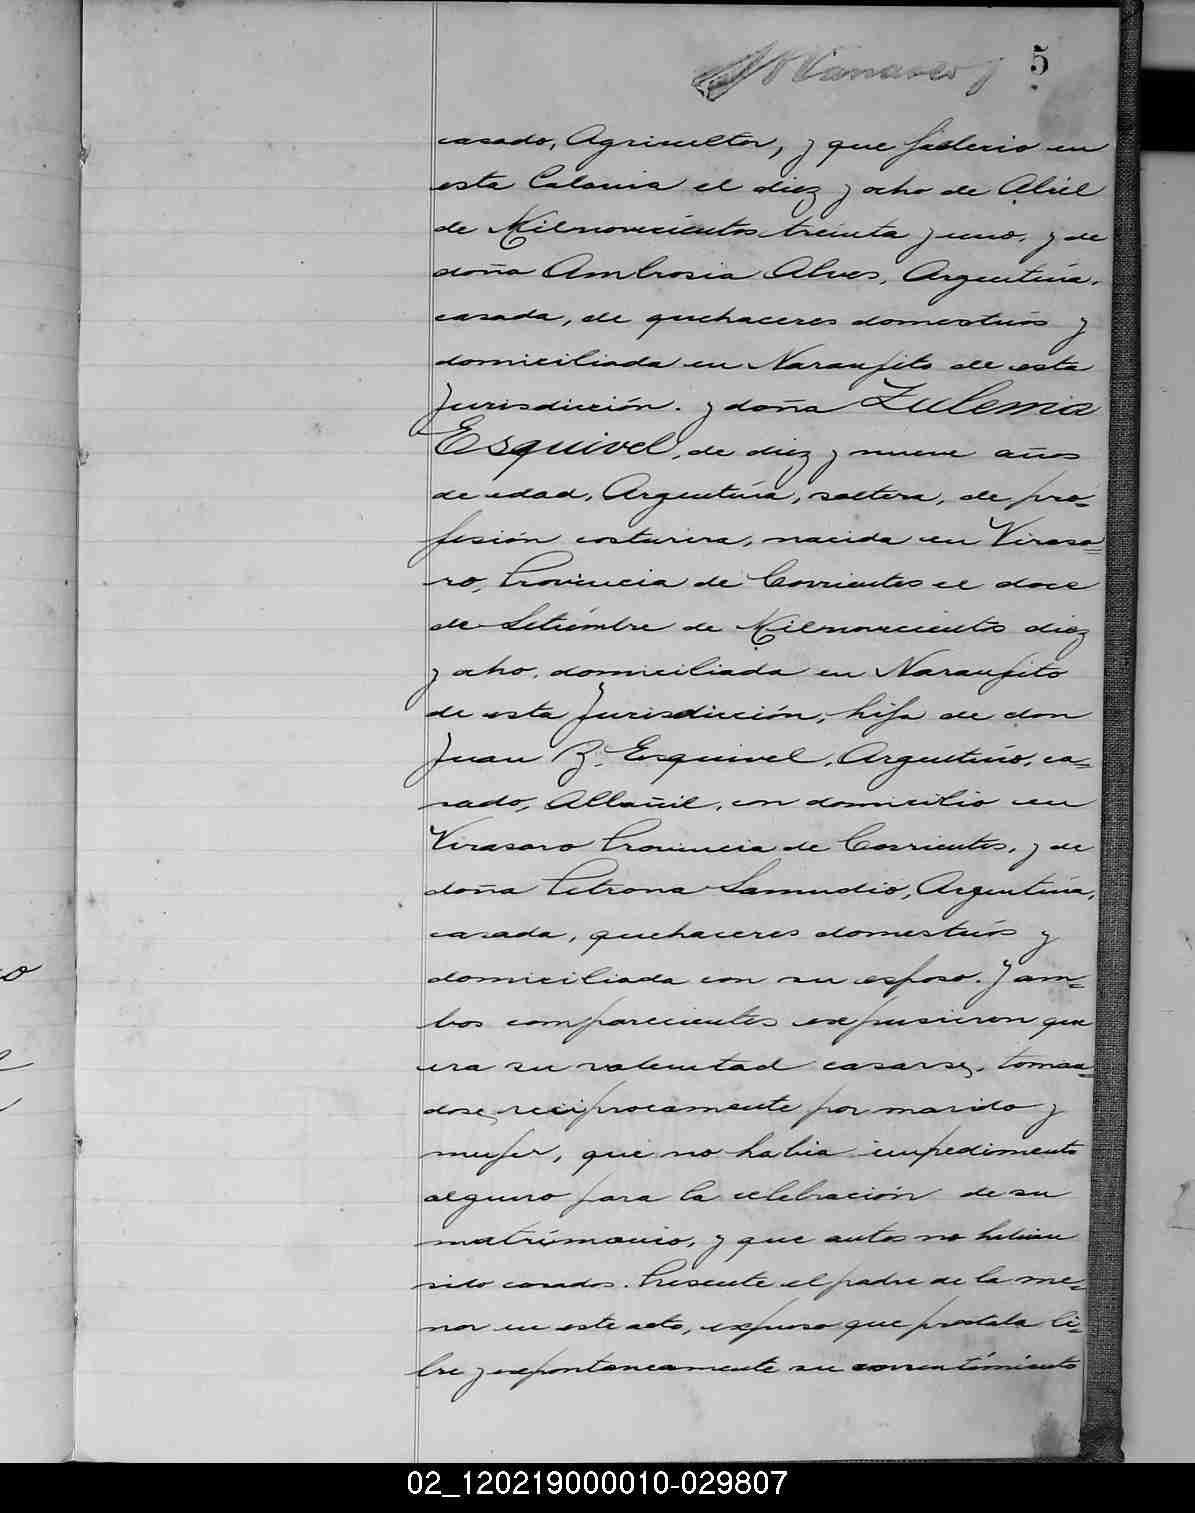 5
casado, Agricultor, y que falleció en
esta Colonia el diez y ocho de Abril
de Milnovecientos treinta y uno, y de
doña Ambrosia Alves, Argentina,
casada, de quehaceres domesticos y
domiciliada en Naranjito de esta
Jurisdicción. y doña Zulema
Esquivel, de diez y nueve años
de edad, Argentina, soltera, de pro=
fesión costurera, nacida en Viraso=
ro, Provincia de Corrientes el doce
de Setiembre de Milnovecientos diez
y ocho, domiciliada en Naranjito
de esta Jurisdicción, hija de don
Juan B. Esquivel, Argentino, ca=
sado, Albañil, con domicilio en
Virasoro Provincia de Corrientes, y de
doña Petrona Samudio, Argentina,
casada, quehaceres domesticos y
domiciliada con su esposo. Y am=
bos comparecientes expusieron que
era su voluntad casarse, toman=
dose reciprocamente por marido y
mujer, que no habia impedimento
alguno para la celebración de su
matrimonio, y que antes no habian
sido casados. Presente el padre de la me=
nor en este acto, expuso que prestaba li=
bre y espontaneamente su consentimiento
02_120219000010-029807